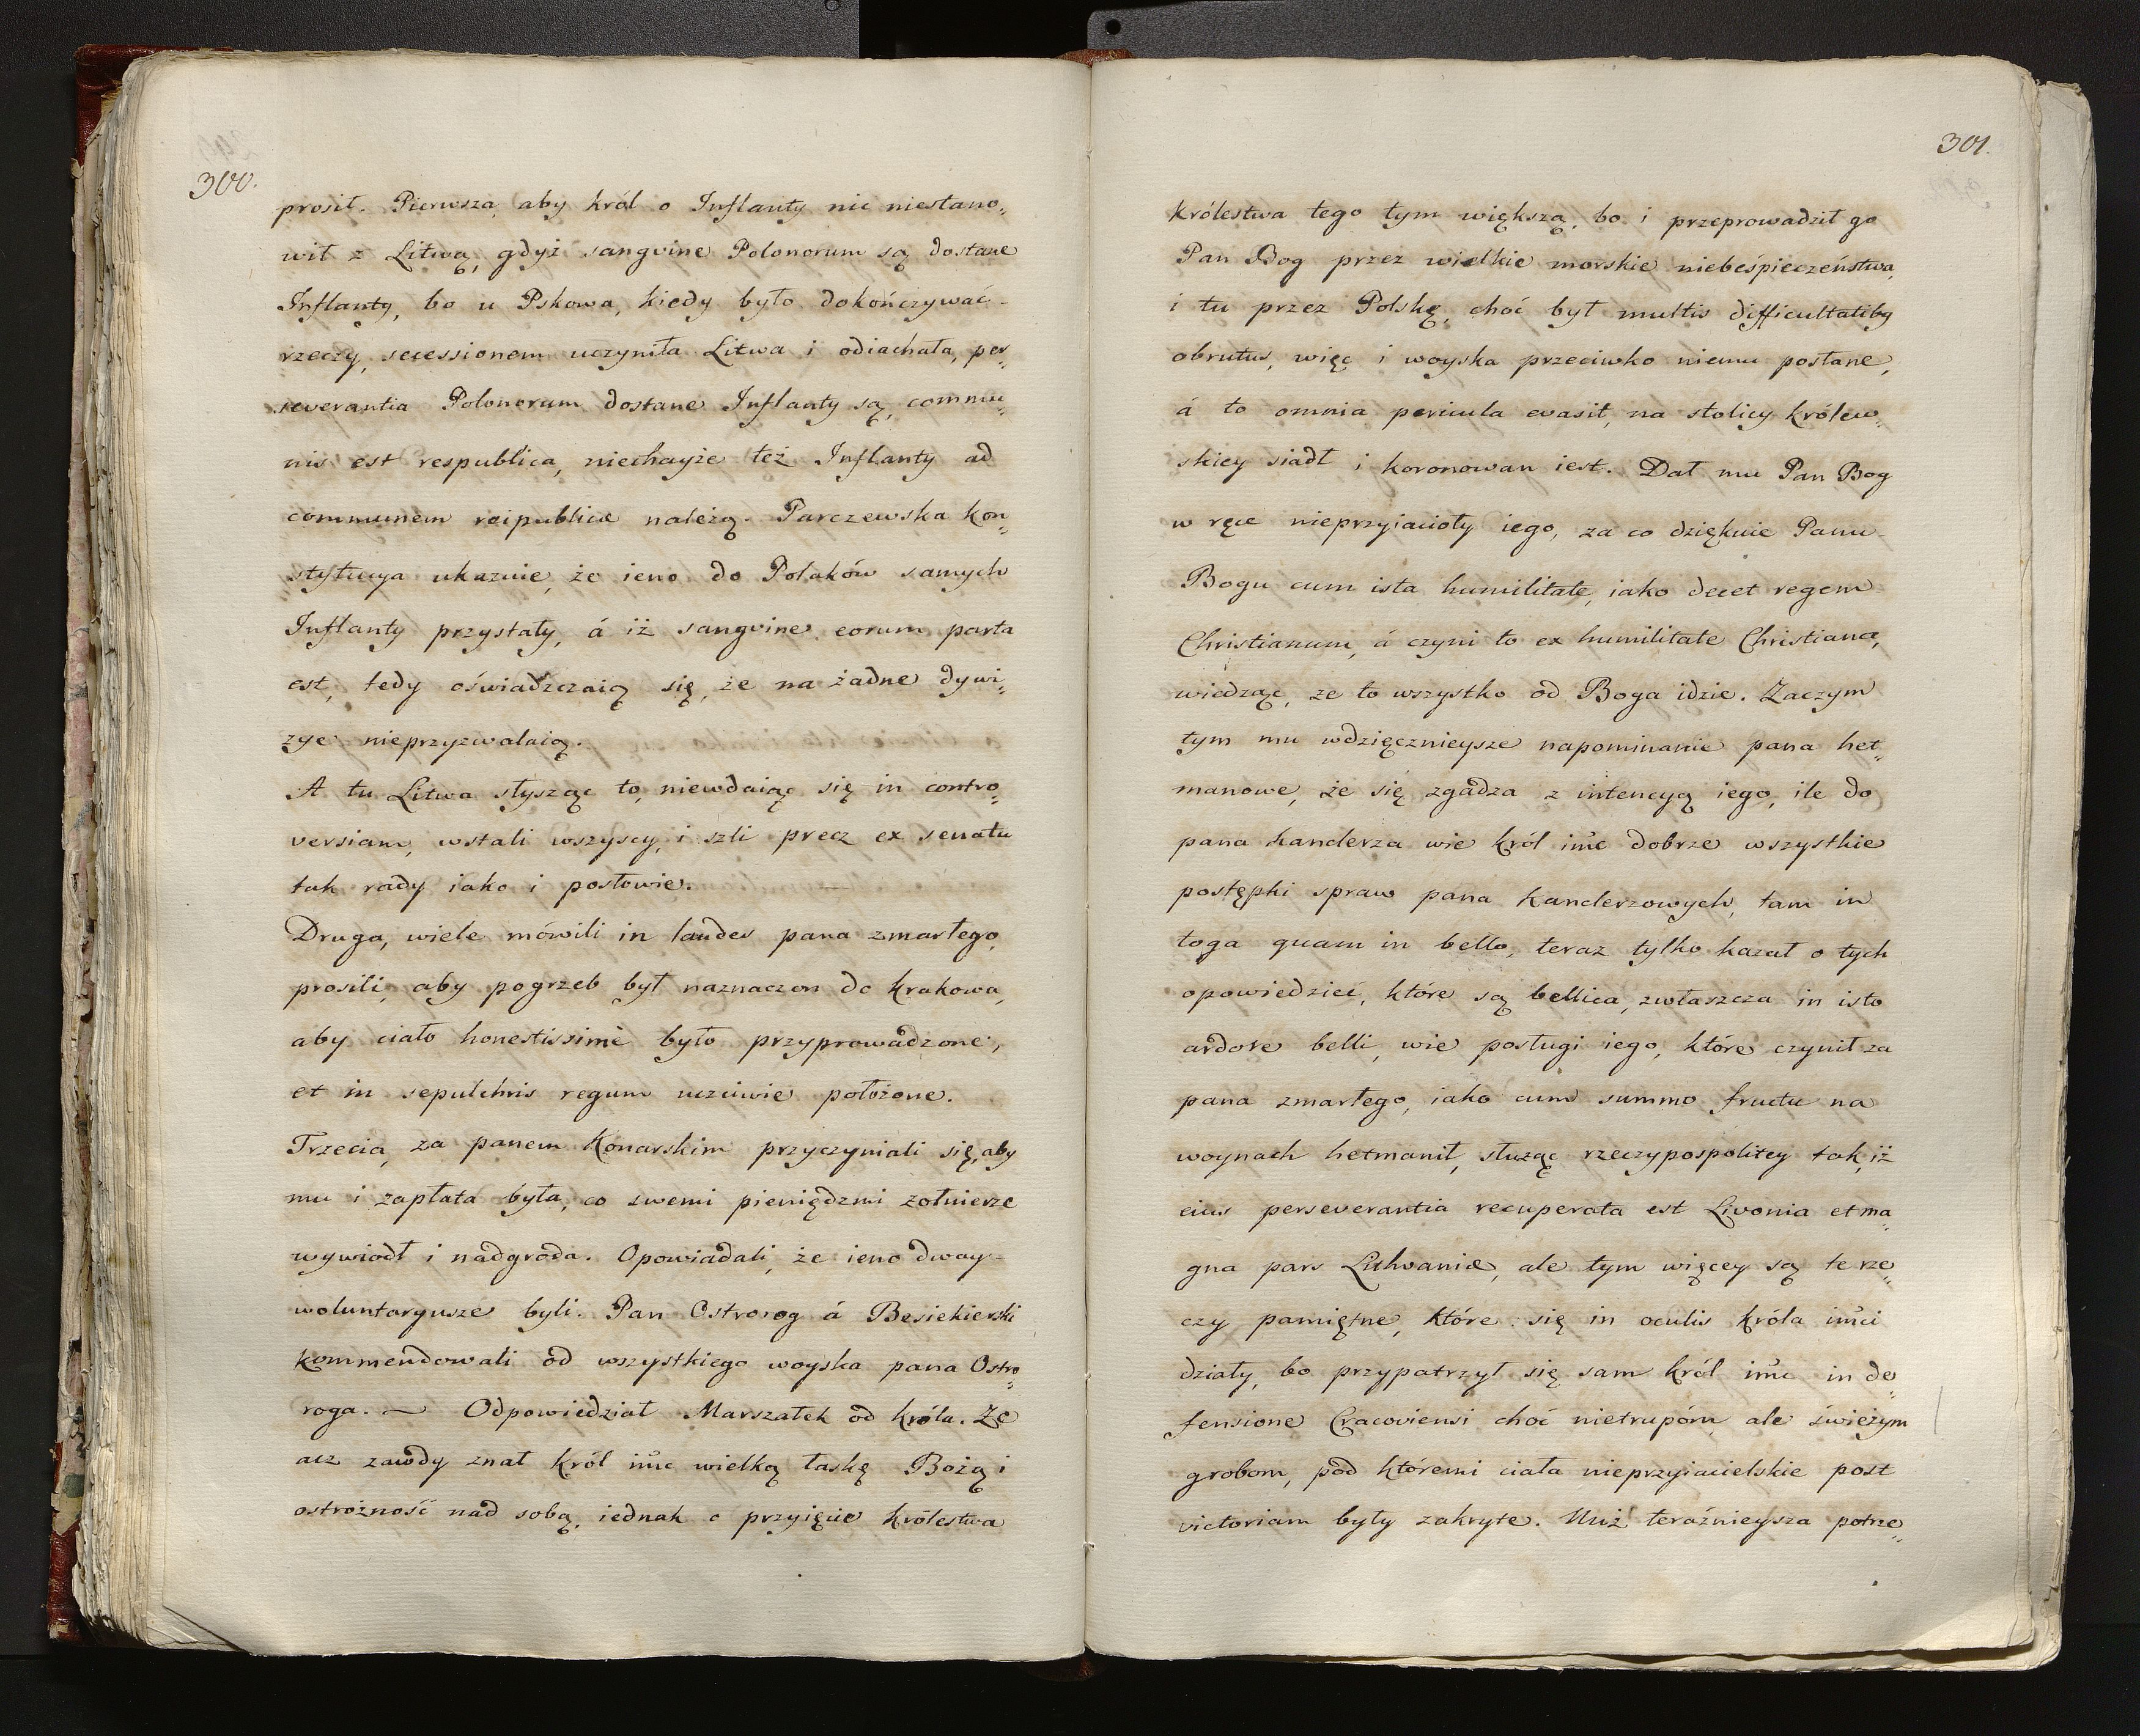 300.
prosił. Pierwsza, aby król o Inflanty nic niestano„
wił z Litwą, gdyż sangvine Polonorum są dostane
Inflanty, bo u Pskowa, kiedy było dokończywać
rzeczy, secessionem uczyniła Litwa i odiachała, per„
severantia Polonorum dostane Inflanty są, commu„
nis est respublica, niechayże też Inflanty ad
communem reipublicæ należą. Parczewska kon„
stytucya ukazuie, że ieno do Polaków samych
Inflanty przystały, á iż sangvine eorum parta
est, tedy oświadzczaią się, że na żadne dywi„
zye nieprzyzwalaią.
A tu Litwa słysząc to, niewdaiąc się in contro„
versiam, wstali wszyscy, i szli precz ex senatu
tak rady iako i posłowie.
Druga, wiele mówili in laudes pana zmarłego,
prosili, aby pogrzeb był naznaczon do Krakowa,
aby ciało honestissimè było przyprowadzone,
et in sepulchris regum uczciwie położone.
Trzecia, za panem Konarskim przyczyniali się, aby
mu i zapłata była, co swemi pieniędzmi żołnierze
wywiodł i nadgroda. Opowiadali, że ieno dway
woluntaryusze byli. Pan Ostrorog á Besiekierski
kommendowali od wszystkiego woyska pana Ostro„
roga. — Odpowiedział Marszałek od króla. Że
acz zawdy znał król imć wielką łaskę Bożą i
ostrożność nad sobą, iednak o przyięcie królestwa
301.
królestwa tego tym większą, bo i przeprowadził go
Pan Bog przez wielkie morskie niebeśpieczeństwa,
i tu przez Polskę, choć był multis difficultatibg
obrutus, więc i woyska przeciwko niemu posłane,
á to omnia pericula evasit, na stolicy królew„
skiey siadł i koronowan iest. Dał mu Pan Bog
w ręce nieprzyiacioły iego, za co dziękuie Panu
Bogu cum ista humilitate, iako decet regem
Christianum, á czyni to ex humilitate Christiana,
wiedząc, ze to wszystko od Boga idzie. Zaczym
tym mu wdzięcznieysze napominanie pana het„
manowe, że się zgadza z intencyą iego, ile do
pana kanclerza wie król imć dobrze wszystkie
postępki spraw pana kanclerzowych, tam in
toga quam in bello, teraz tylko kazał o tych
opowiedzieć, które są bellica, zwłaszcza in isto
ardore belli, wie posługi iego, które czynił za
pana zmarłego, iako cum summo fructu na
woynach hetmanił, służąc rzeczypospolitey tak, iż
eius perseverantia recuperata est Livonia et ma„
gna pars Lithvaniæ, ale tym więcey są te rze„
czy pamiętne, które się in oculis króla imći
działy, bo przypatrzył się sam król imć in de„
fensione Cracoviensi choć nietrupóm, ale świeżym
grobom, pod któremi ciała nieprzyiacielskie post
victoriam były zakryte. Nuż teraźnieysza potrze„